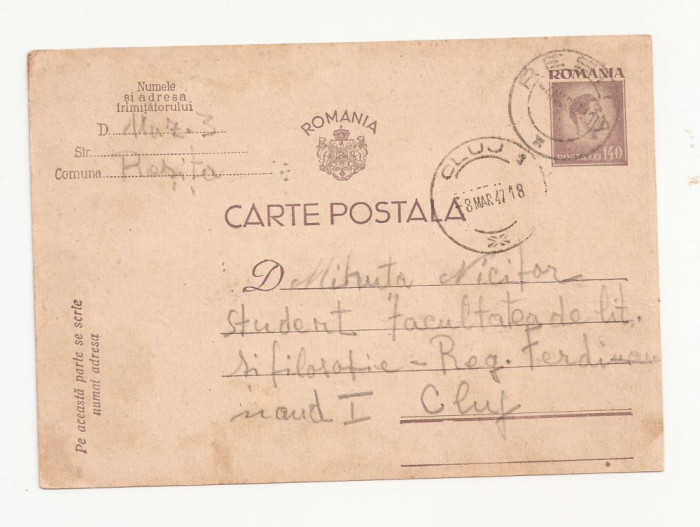 Numele
și adresa
trimițătorului
D.
Str.
Comuna Reșița
ROMANIA
CARTE POSTALA
ROMANIA
POSTA LEI 140
CLUJ
8 MAR 47 18
D Mihuta Nicifor
student Facultatea de lit.
și filosofie - Reg. Ferdinan
nand I Cluj
Pe această parte se scrie
numai adresa